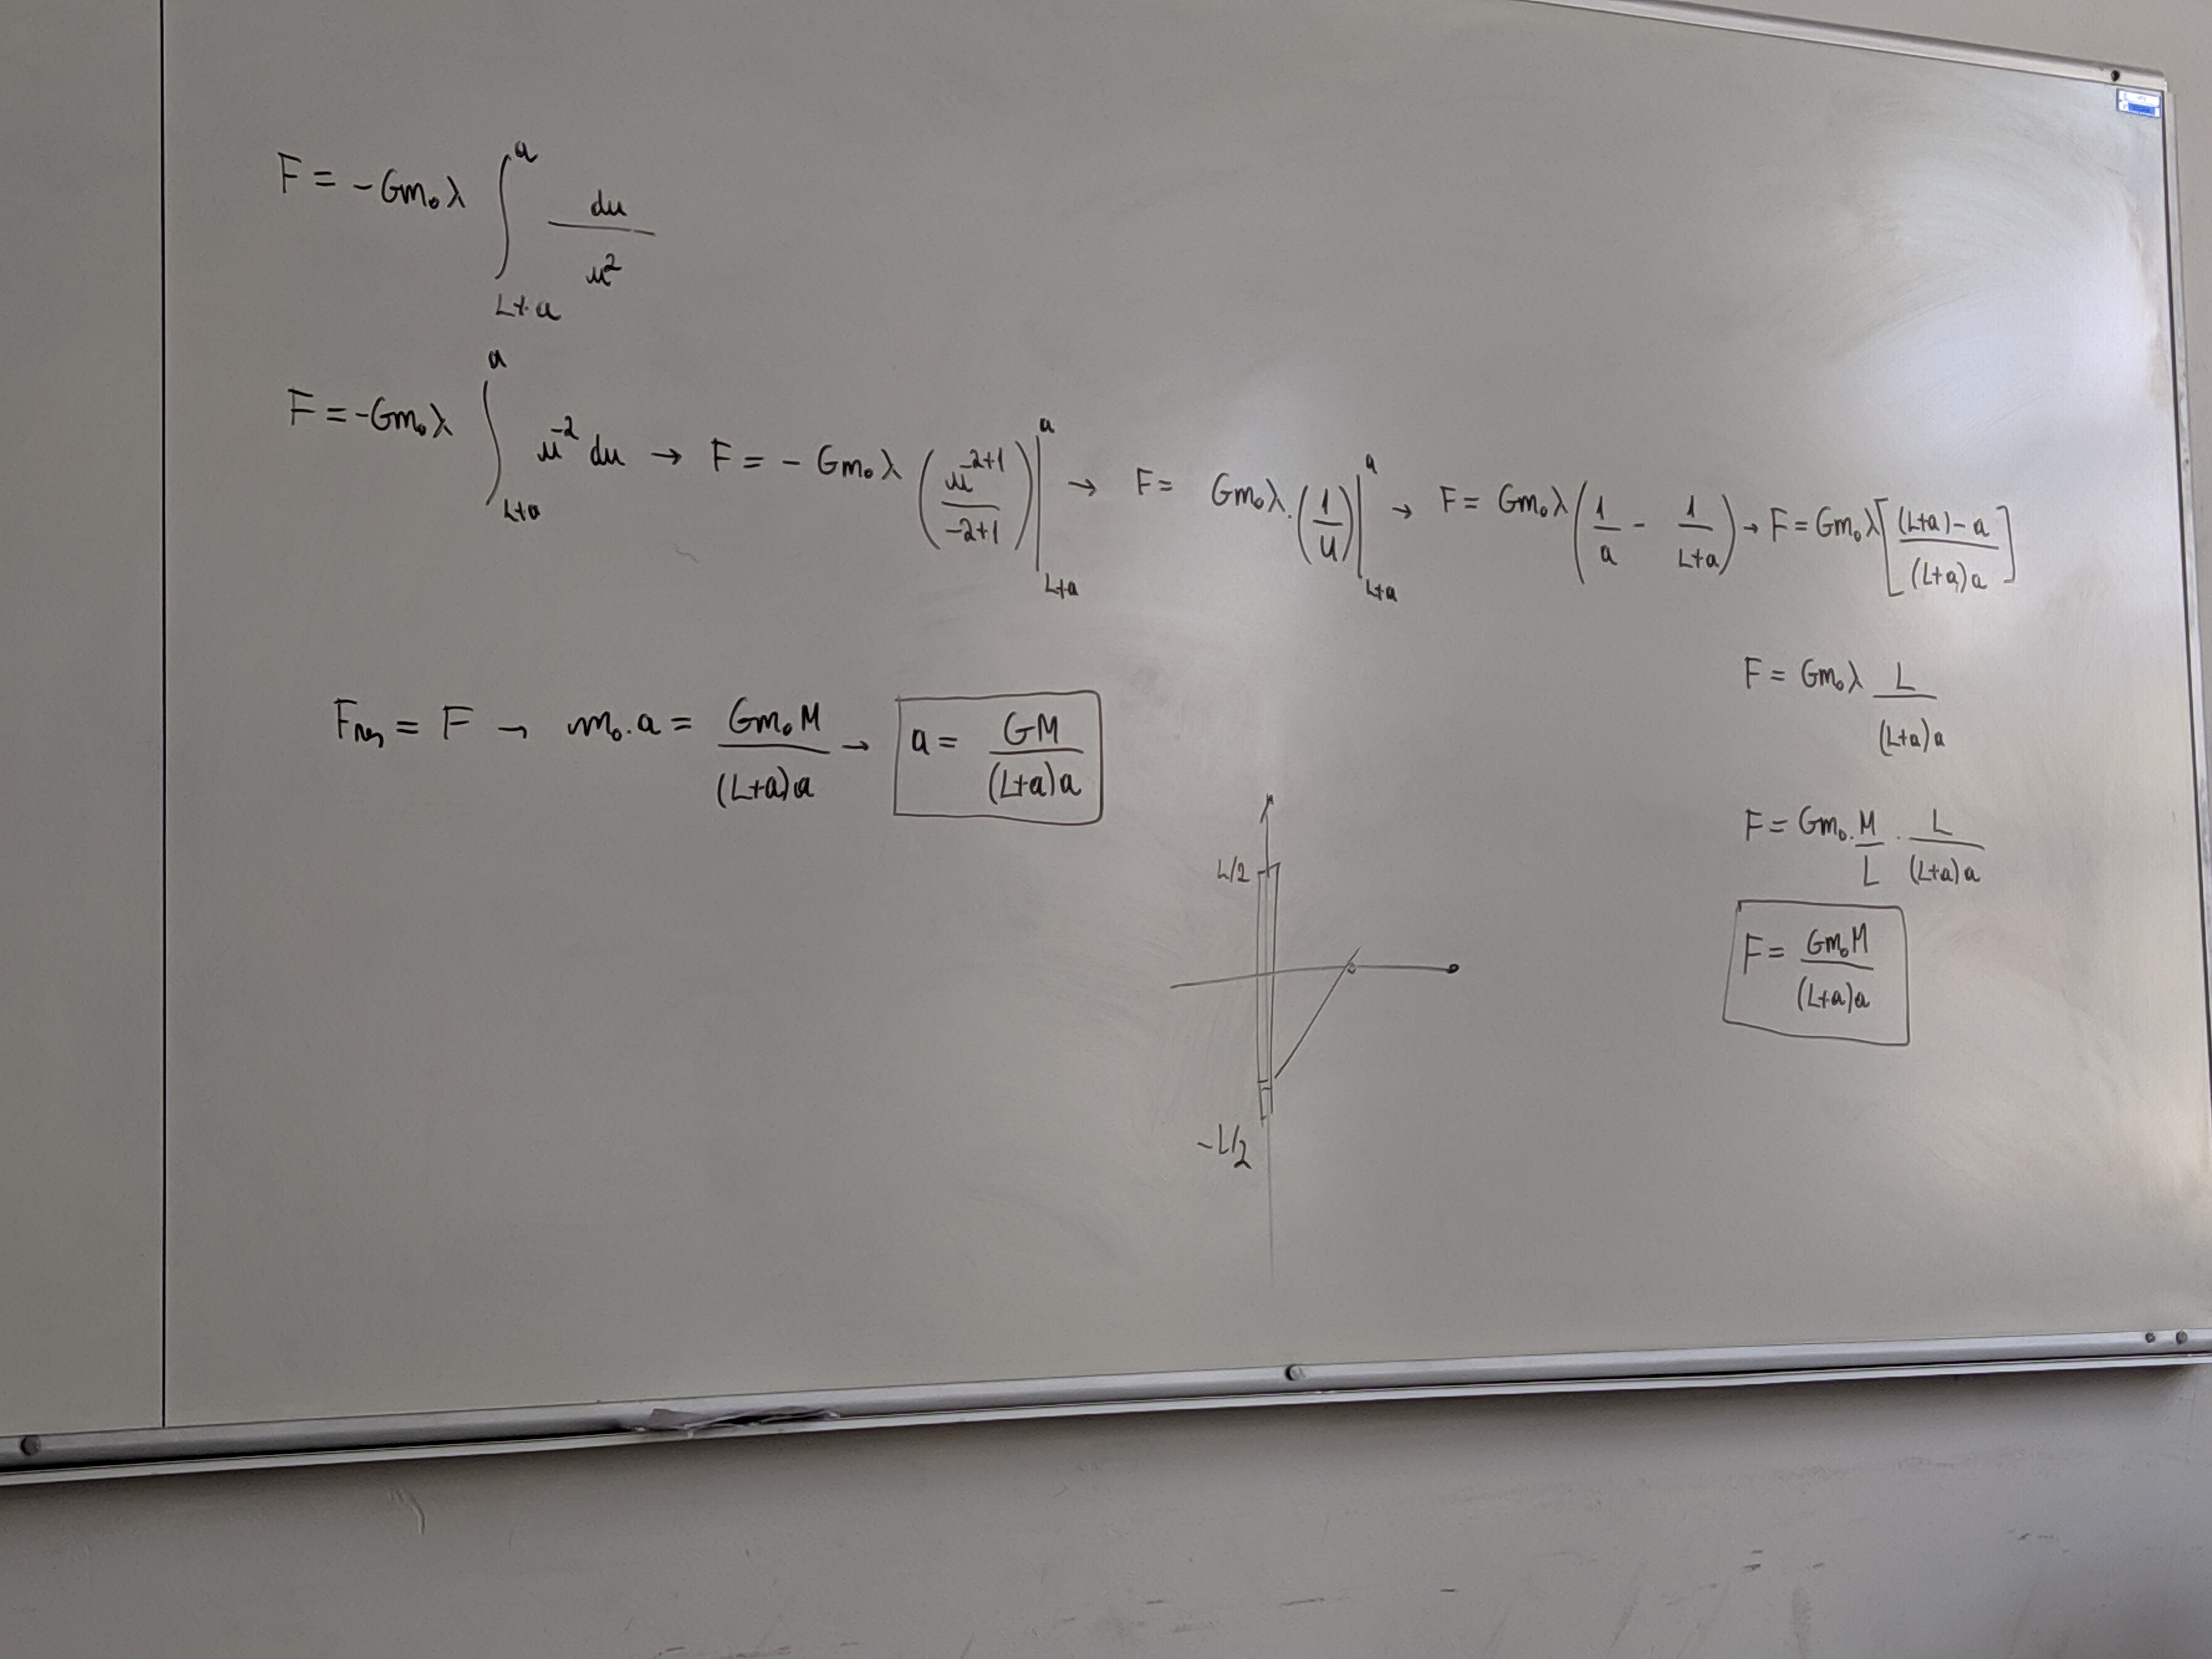 F = -Gm₀λ ∫_{L+a}^{a} du/u²
F = -Gm₀λ ∫_{L+a}^{a} u⁻² du → F = - Gm₀λ (u⁻²⁺¹/-2+1)|_{L+a}^{a} → F = Gm₀λ.(1/u)|_{L+a}^{a} → F = Gm₀λ(1/a - 1/L+a) → F = Gm₀λ[(L+a)-a/(L+a)a]
F = Gm₀λ L/(L+a)a
F = Gm₀.M/L . L/(L+a)a
F = Gm₀M/(L+a)a
F_res = F → m₀.a = Gm₀M/(L+a)a → a = GM/(L+a)a
L/2
-L/2